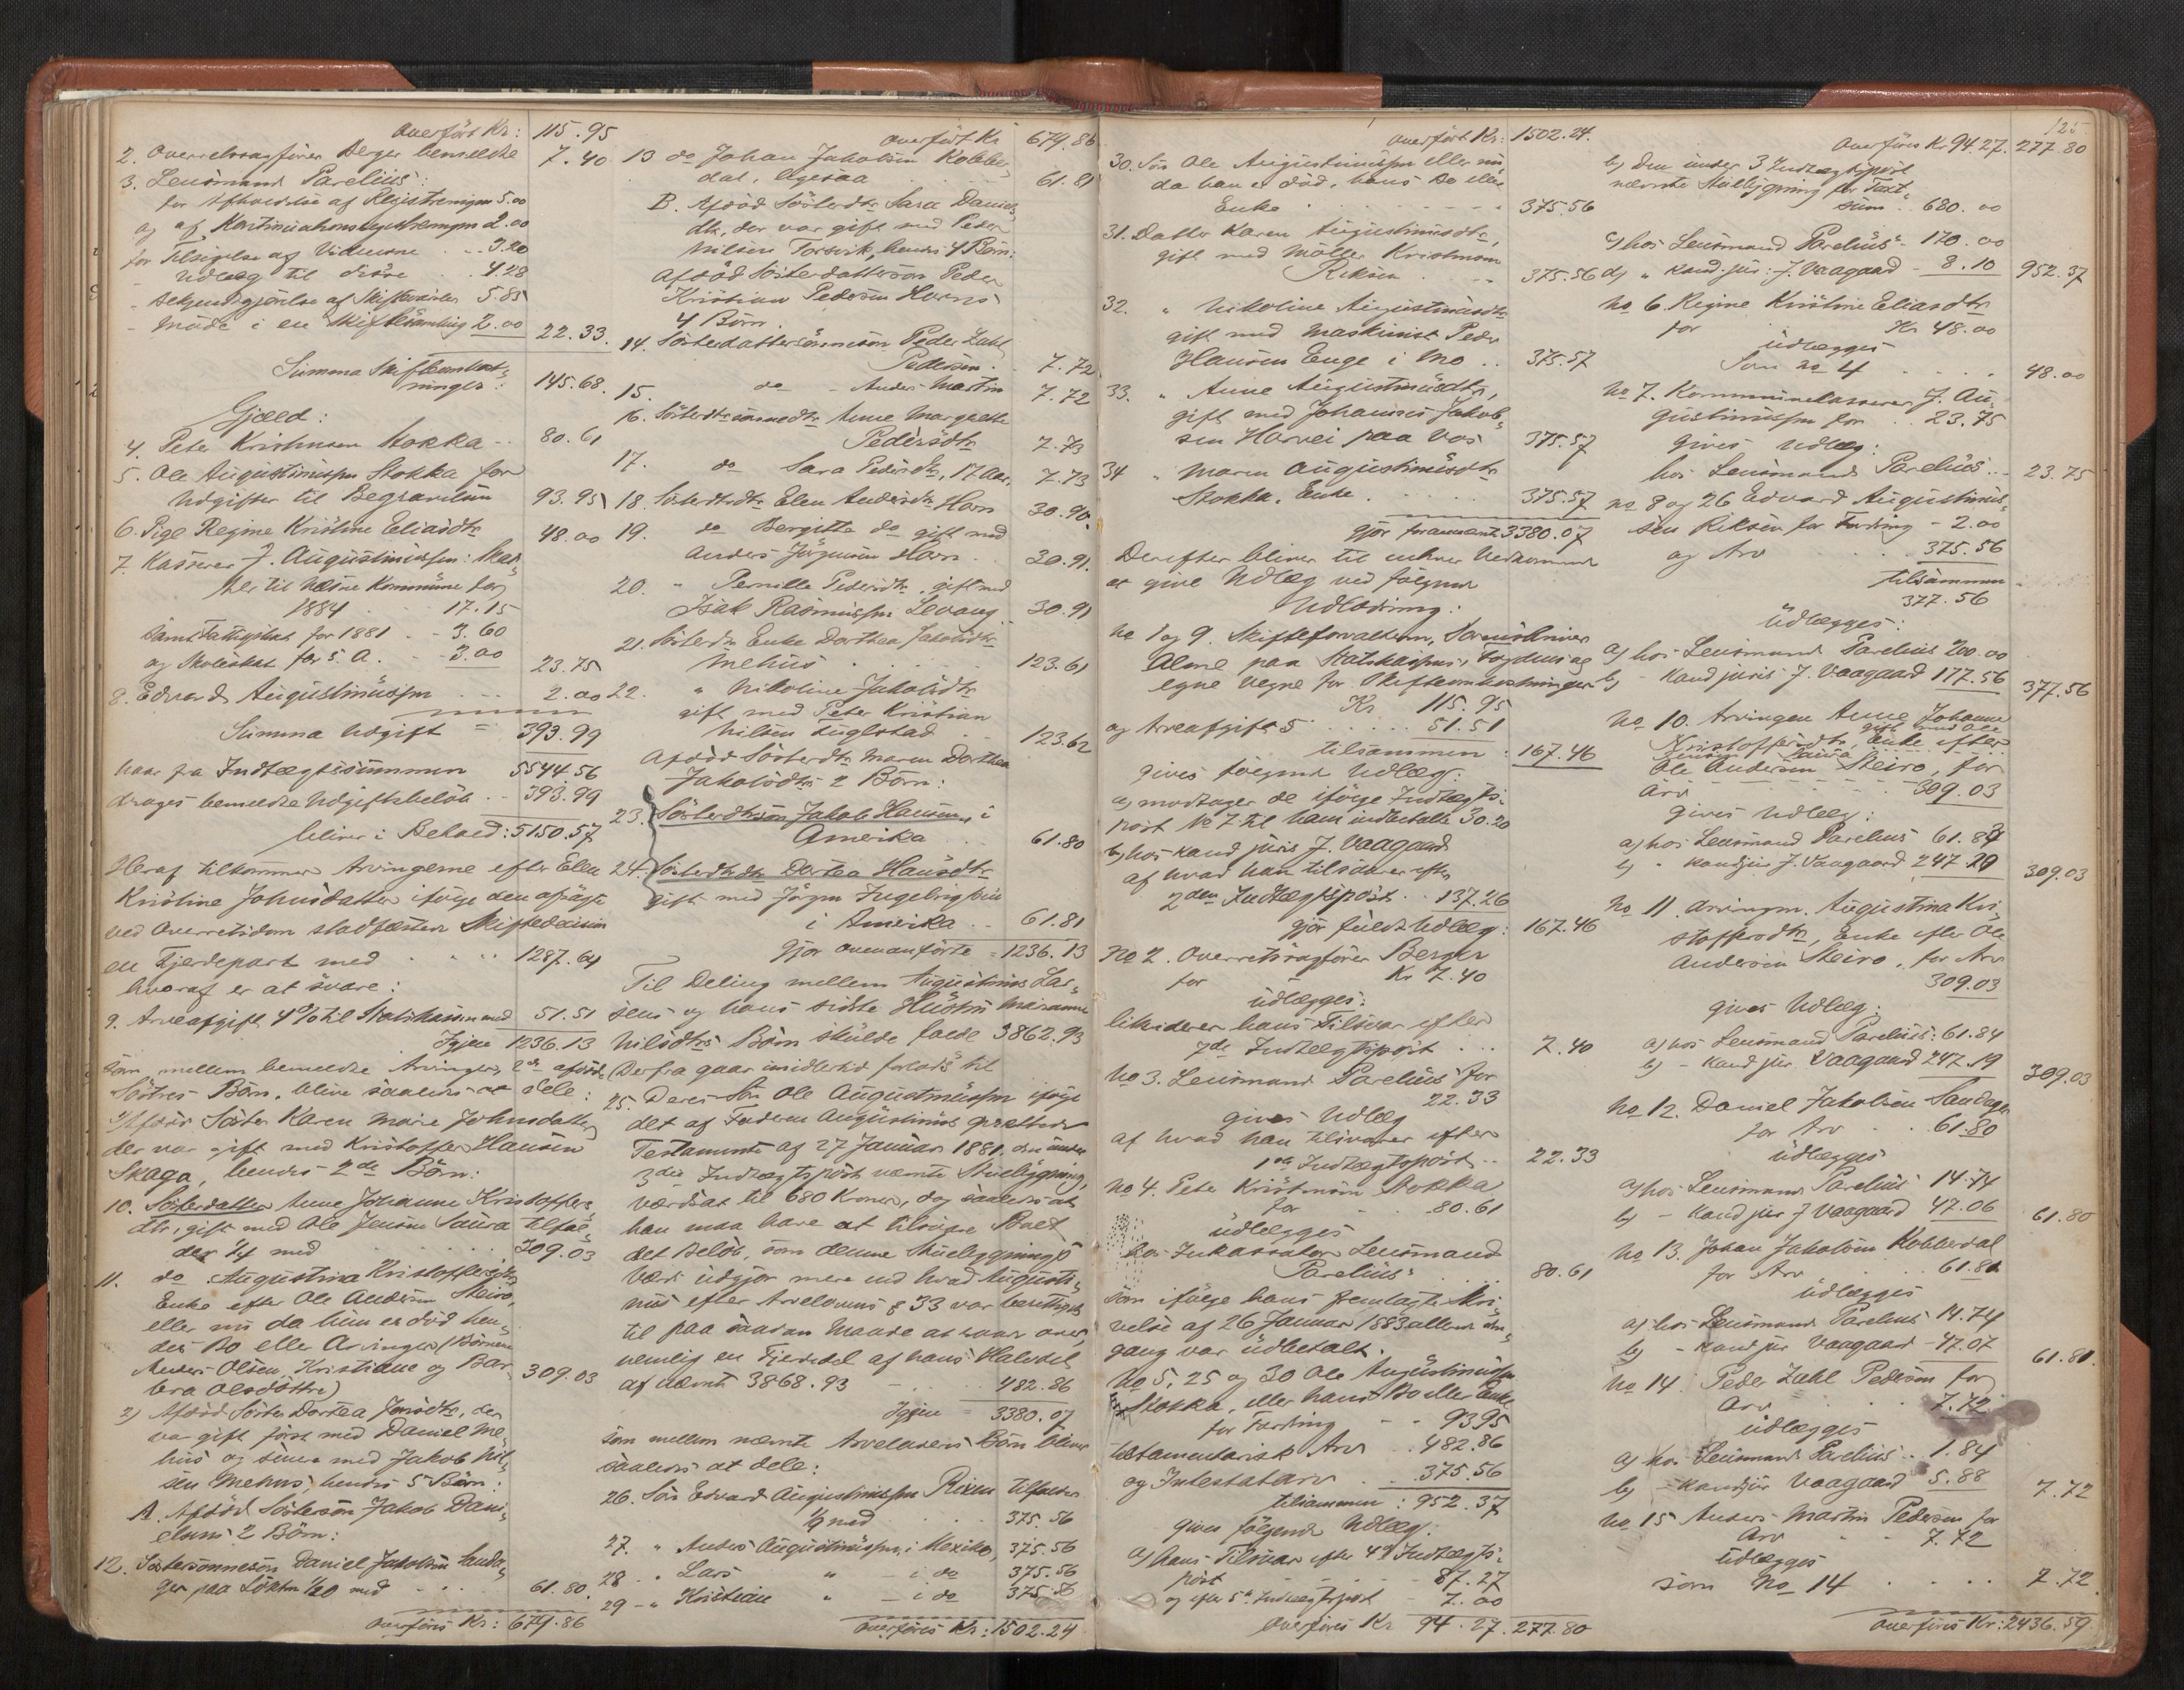 Overført Kr: 115.95
2. Overretssagfører Berger bemeldte 7.40
3. Lensmand Parelius:
for Afholdelse af Registreringen 5.00
og af Kontinuationsregistreringen 2.00
for Tilsigelse af Vidnerne 3.20
- Udlæg til disse 4.28
- Bekjendtgjørelse af Skiftevarsler 5.85
- Møde i en Skiftesamling 2.00 22.33.
Summa Skifteomkost-
ninger: 145.68.
Gjæld:
4. Peter Kristensen Stokka 80.61
5. Ole Augustinussen Stokka for
Udgifter til Begravelsen 93.95
6. Pige Regine Kristine Eliasdtr 48.00
7. Kasserer J. Augustinussen: Skat-
ter til Næsne Kommune for
1884 17.15
samt Fattigskat for 1881 - 3.60
og Skoleskat for s. A. - 3.00 23.75
8. Edvard Augustinussen 2.00
Summa Udgift = 393.99
Naar fra Indtægtssummen 5544.56
drages bemeldte Udgiftsbeløb - 393.99
bliver i Behold: 5150.57
Heraf tilkommer Arvingerne efter Elen
Kristine Johnsdatter ifølge den afsagte
ved Overretsdom stadfæstede Skiftedecision
en Fjerdepart med 1287.64
hvoraf er at svare:
9. Arveafgift 4% til Statskassen med 51.51
Igjen 1236.13
som mellem bemeldte Arvinger, 2de afdøde
Søstres Børn, blive saaledes at dele:
1) Afdød Søster Karen Marie Johnsdatter
der var gift med Kristoffer Hansen
Skaga, hendes 2de Børn:
10. Søsterdatter Anne Johanne Kristoffers-
dtr, gift med Ole Jensen Saura tilfal-
der 1/4 med 309.03
11. do Augustina Kristoffersdtr
Enke efter Ole Andersen Steiro,
eller nu da hun er død hen-
des Bo eller Arvinger (Børnene
Anders Olsen, Kristiane og Bar-
bra Olsdøttre) 309.03
2) Afdød Søster Dortea Jonsdtr, der
var gift først med Daniel Me-
hus og senere med Jakob Nil-
sen Mehus, hendes 5 Børn:
A. Afdød Søstersøn Jakob Dani-
elsens 2 Børn:
12. Søstersønnesøn Daniel Jakobsen Sanda-
ger paa Løkta 1/20 med 61.80
overføres Kr: 679.86
Overført Kr 679.86
13 do Johan Jakobsen Kobber-
dal, ligesaa 61.81
B. Afdød Søsterdtr Sara Daniels-
dtr, der var gift med Peder
Nilsen Forsvik, hendes 4 Børn:
Afdød Søsterdattersøn Peder
Kristian Pedersen Horns
4 Børn.
14. Søsterdattersønnesøn Peder Zahl
Pedersen 7.72
15. do - Anders Martin 7.72
16. Søsterdtrsønnedtr Anne Margrethe
Pedersdtr 7.73
17. do Sara Pedersdtr, 17 Aar, 7.73
18. Søsterdtrdtr Elen Andersdtr Horn 30.90
19. do Bergitte do gift med
Anders Jørgensen Horn 30.91
20. " Pernille Pedersdtr, gift med
Isak Rasmussen Levang 30.91
21. Søsterdtr Enke Dorthea Jakobsdtr
Mehus 123.61
22. " Nikoline Jakobsdtr
gift med Peter Kristian
Nilsen Fuglstad 123.62
Afdød Søsterdtr Maren Dorthea
Jakobsdtrs 2 Børn:
23. Søsterdtrsøn Jakob Hansen, i
Amerika 61.80
24. Søsterdtrdtr Dortea Hansdtr
gift med Jørgen Ingebrigtsen
i Amerika 61.81
Gjør ovenanførte = 1236.13
Til Deling mellem Augustinus Lar-
sens og hans sidste Hustru Marianne
Nilsdtrs Børn skulde falde 3862.93
Derfra gaar imidlertid forlods til
25. Deres Søn Ole Augustinussen ifølge
det af Faderen Augustinus oprettede
Testamente af 27 Januar 1881 den under
3die Indtægtspost nævnte Stuebygning,
værdsat til 680 Kroner, dog saaledes at
han maa have at tilsvare Boet
det Beløb, som denne Stuebygnings
Værd udgjør mere end hvad Augusti-
nus efter Arvelovens § 33 var berettiget
til paa saadan Maade at raade over
nemlig en Fjerdedel af hans Halvdel
af nævnte 3868.93 482.86
Igjen = 3380.07
som mellem nævnte Arveladers Børn bliver
saaledes at dele:
26. Søn Edvard Augustinussen Rixen tilfalder
1/9 med 375.56
27. " Anders Augustinussen, i Mexiko, 375.56
28 - Lars " - i do 375.56
29 - " Kristian " - i do 375.56
overføres Kr: 1502.24
125.
overført Kr: 1502.24.
30. Søn Ole Augustinussen eller nu
da han er død, hans Bo eller
Enke 375.56
31. Datter Karen Augustinusdtr,
gift med Møller Kristensen
Riksen 375.56
32. " Nikoline Augustinusdtr
gift med Maskinist Peder
Hansen Enge i Mo 375.57
33. " Anne Augustinusdtr,
gift med Johannes Jakob-
sen Horvei paa Vos 375.57
34 " Maren Augustinusdtr
Stokka, Enke 375.57
gjør forannævnte 3380.07
Derefter bliver til enhver Vedkommende
at give Udlæg ved følgende
Udlodning:
No 1 og 9. Skifteforvalteren, Sorenskriver
Alme paa Statskassens, Fogdens og
egne Vegne for Skifteomkostninger
Kr 115.95
og Arveafgift 51.51
tilsammen: 167.46
gives følgende Udlæg:
a) modtager de ifølge Indtægts-
post No 7 til ham indbetalte 30.20
b) hos kand juris J. Vaagaard
af hvad han tilsvarer efter
2den Indtægtspost 137.26
gjør fuldt Udlæg: 167.46
No 2. Overretssagfører Berger
for Kr 7.40
udlægges:
likviderer hans Tilsvar efter
7de Indtægtspost 7.40
No 3. Lensmand Parelius for
22.33
gives Udlæg
af hvad han tilsvarer efter
1ste Indtægtspost 22.33
No 4. Peter Kristensen Stokka
for 80.61
udlægges
hos Inkassator Lensmand
Parelius 80.61
som ifølge hans fremlagte Skri-
velse af 26 Januar 1883 allerede den-
gang var udbetalt.
No 5, 25 og 30 Ole Augustinussen
Stokka, eller hans Bo eller Enke
for Fordring 93.95
testamentarisk Arv 482.86
og Intestatarv 375.56
tilsammen: 952.37
gives følgende Udlæg:
a) hans Tilsvar efter 4de Indtægts-
post 87.27
og efter 5te Indtægtspost 7.00
overføres Kr 94.27. 277.80
Overføres Kr 94.27. 277.80
b) den under 3 Indtægtspost
nævnte Stuebygning for Taxt-
sum 680.00
c) hos Lensmand Parelius - 170.00
d) " kand. jur. J. Vaagaard - 8.10 952.37
No 6. Regine Kristine Eliasdtr
for Kr 48.00
udlægges
Som no 4 48.00
No 7. Kommunekasserer J. Au-
gustinussen for 23.75
gives Udlæg:
hos Lensmand Parelius 23.75
No 8 og 26 Edvard Augustinus-
sen Riksen for Fordring - 2.00
og Arv 375.56
tilsammen
377.56
Udlægges:
a) hos Lensmand Parelius 200.00
b) - kand juris J. Vaagaard 177.56 377.56
No 10. Arvingen Anne Johanne
Kristoffersdtr, gift med Ole
Jensen Saura
enke efter
Ole Andersen Steiro, for
Arv 309.03
gives Udlæg:
a) hos Lensmand Parelius 61.84
b) " kand jur J. Vaagaard 247.19 309.03
No 11. Arvingen Augustina Kri-
stoffersdtr, Enke efter Ole
Andersen Steiro, for Arv
309.03
gives Udlæg:
a) hos Lensmand Parelius: 61.84
b) - kand jur. Vaagaard 247.19 309.03
No 12. Daniel Jakobsen Sandager
for Arv 61.80
udlægges
a) hos Lensmand Parelius 14.74
b) - kand jur J Vaagaard 47.06 61.80
No 13. Johan Jakobsen Kobberdal
for Arv 61.81
udlægges
a) hos Lensmand Parelius 14.74
b) - kand jur Vaagaard - 47.07 61.81.
No 14. Peder Zahl Pedersen for
Arv 7.72
udlægges
a) hos Lensmand Parelius 1.84
b) - kand jur Vaagaard 5.88 7.72
No 15 Anders Martin Pedersen for
Arv 7.72
udlægges
som No 14 7.72
overføres Kr: 2436.59